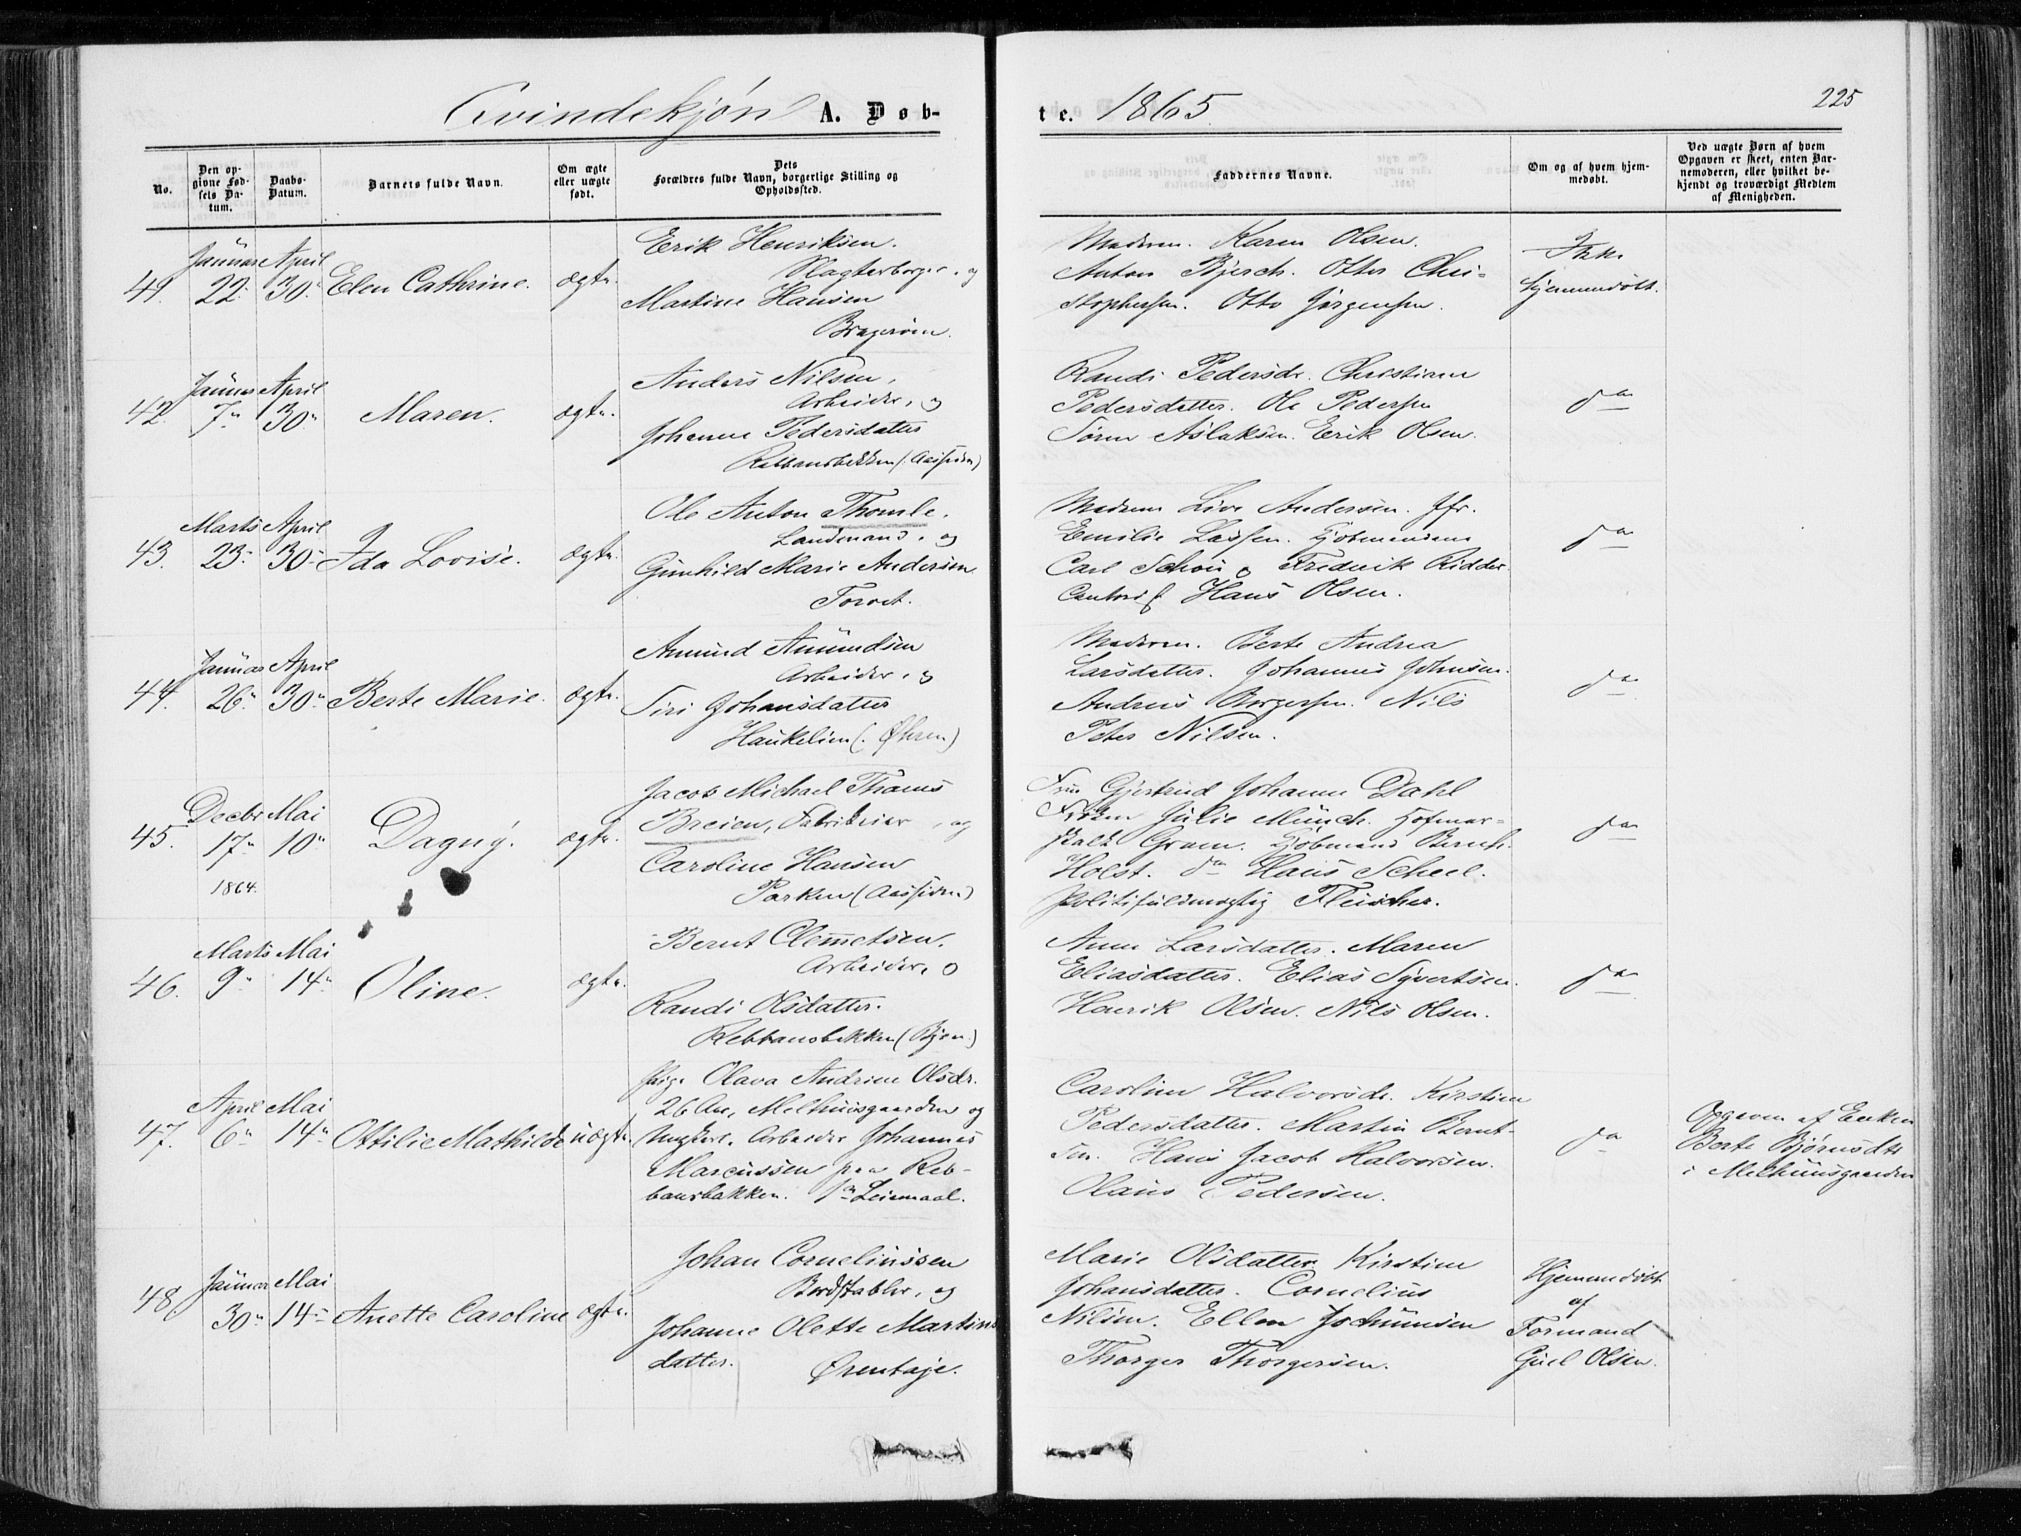 Qvindekjøn A. Døb-
te. 1865.
225
No.
Den op-
givne Fød-
sels Da-
tum.
Daabs-
Datum.
Barnets fulde Navn.
Om ægte
eller uægte
født.
Dets
Forældres fulde Navn, borgerlige Stilling og
Opholdssted.
Faddernes Navne.
Om og af hvem hjem-
medøbt.
Ved uægte Børn af hvem
Opgaven er skeet, enten Bar-
nemoderen, eller hvilket be-
kjendt og troværdigt Medlem
af Menigheden.
41.
Januar
22.
April
30.
Elen Cathrine.
ægte
Erik Henriksen.
Slagterborger, og
Martine Hansen
Bragerøen.
Moderen. Karen Olsen.
Anton Bjerch. Otter Chri-
stophersen. Otto Jørgensen.
Ikke
hjemmedøbt.
42.
Januar
7
April
30
Maren.
ægte.
Anders Nilsen,
Arbeider, og
Johanne Pedersdatter
Rebbansbakken (Aassiden)
Randi Pedersdr. Christiane
Pedersdatter. Ole Pedersen
Søren Aslaksen. Erik Olsen.
do
43.
Marts
23
April
30
Ida Lovise.
ægte.
Ole Anton Thomle.
Landmand, og
Gunhild Marie Andersen
Torvet.
Madam Live Andersen. Jfr.
Emilie Lassen. Kjøbmændene
Carl Schou og Fredrik Ridder.
Contorist Hans Olsen.
do
44.
Januar
26
April
30
Berte Marie.
ægte.
Amund Amundsen
Arbeider, og
Siri Johansdatter
Haukelien (Øhren)
Moderen. Berte Andrea
Larsdatter. Johannes Johnsen.
Andreas Borgersen. Nils
Peter Nilsen.
do
45.
Decbr
17
1864.
Mai
10
Dagny.
ægte.
Jacob Michael Thams
Breien, Fabrikeier, og
Caroline Hansen
Parken (Aassiden)
Fru Gjertrud Johanne Dahl
Frøken Julie Münch. Hofmar-
skalk Gram. Kjøbmand Bernh.
Holst. do Hans Scheel.
Politifuldmægtig Fleischer.
do
46.
Marts
9
Mai
14
Oline.
ægte.
Bernt Clemetsen.
Arbeider, o
Randi Olsdatter.
Rebbansbakken (Byen)
Anne Larsdatter. Maren
Eliasdatter. Elias Syvertsen.
Henrik Olsen. Nils Olsen.
do
47.
April
6
Mai
14
Ottilie Mathilde
uægte.
Pige Olava Andrine Olsdr.
26 Aar, Melhuusgaarden og
Ungkarl. Arbeider Johannes
Marcussen paa Reb-
bansbakken. 1ste Leiermaal.
Caroline Halvorsdr. Kirstine
Pedersdatter. Martin Bernt-
sen. Hans Jacob Halvorsen.
Olaus Pedersen.
do
Opgaven af Enken
Berte Bjørnsdtr
i Melhuusgaarden
48.
Januar
30
Mai
14
Anette Caroline
ægte.
Johan Corneliussen
Bordstabler, og
Johanne Olette Martins
datter.
Ørentoje.
Marie Olsdatter Kirstine
Johansdatter. Cornelius
Nilsen. Ellen Jochumsen
Thorger Thorgersen.
Hjemmedøbt
af
Formand
Gul Olsen.